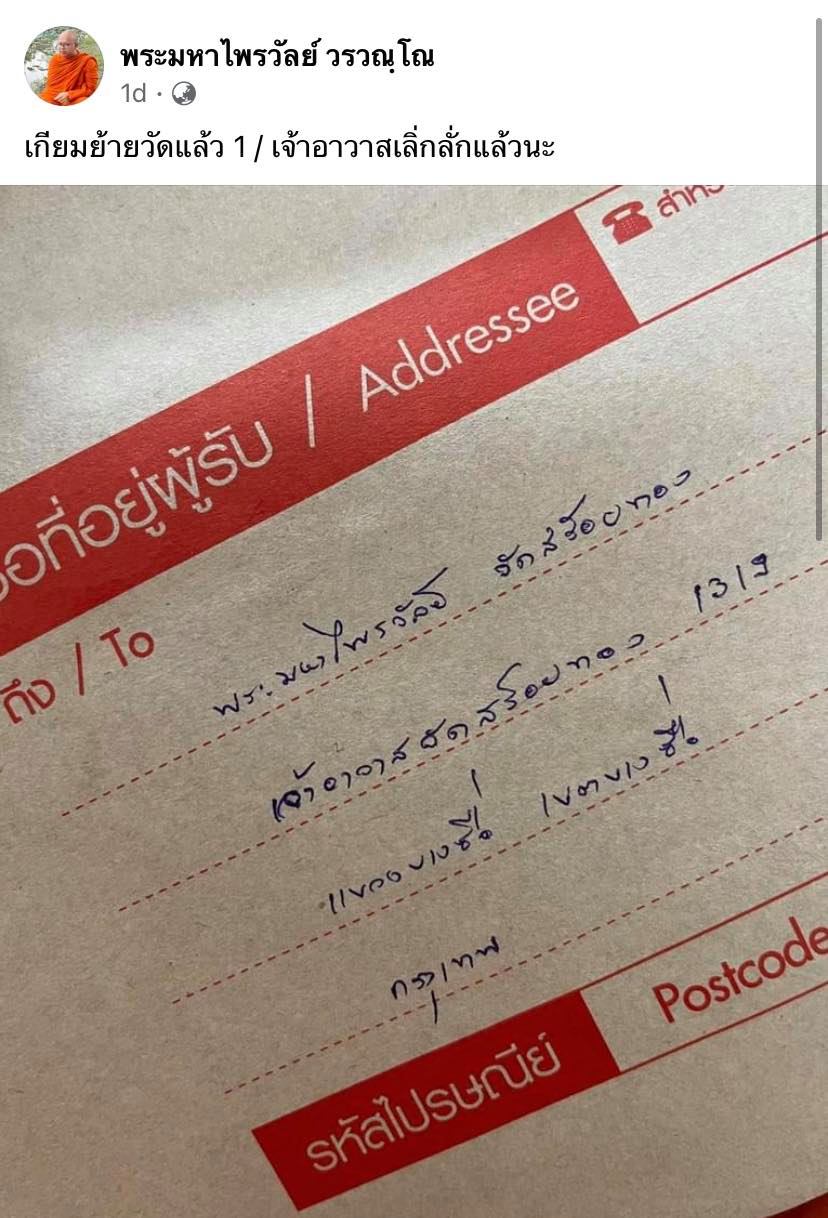 พระมหาไพรวัลย์ วรวณฺโณ
1d ·
เกียมย้ายวัดแล้ว 1 / เจ้าอาวาสเลิ่กลั่กแล้วนะ
ที่อยู่ผู้รับ / Addressee
ถึง / To
พระมหาไพรวัลย์ วัดสร้อยทอง
เจ้าอาวาสวัดสร้อยทอง 1319
แขวงบางซื่อ เขตบางซื่อ
กรุงเทพ
รหัสไปรษณีย์
Postcode